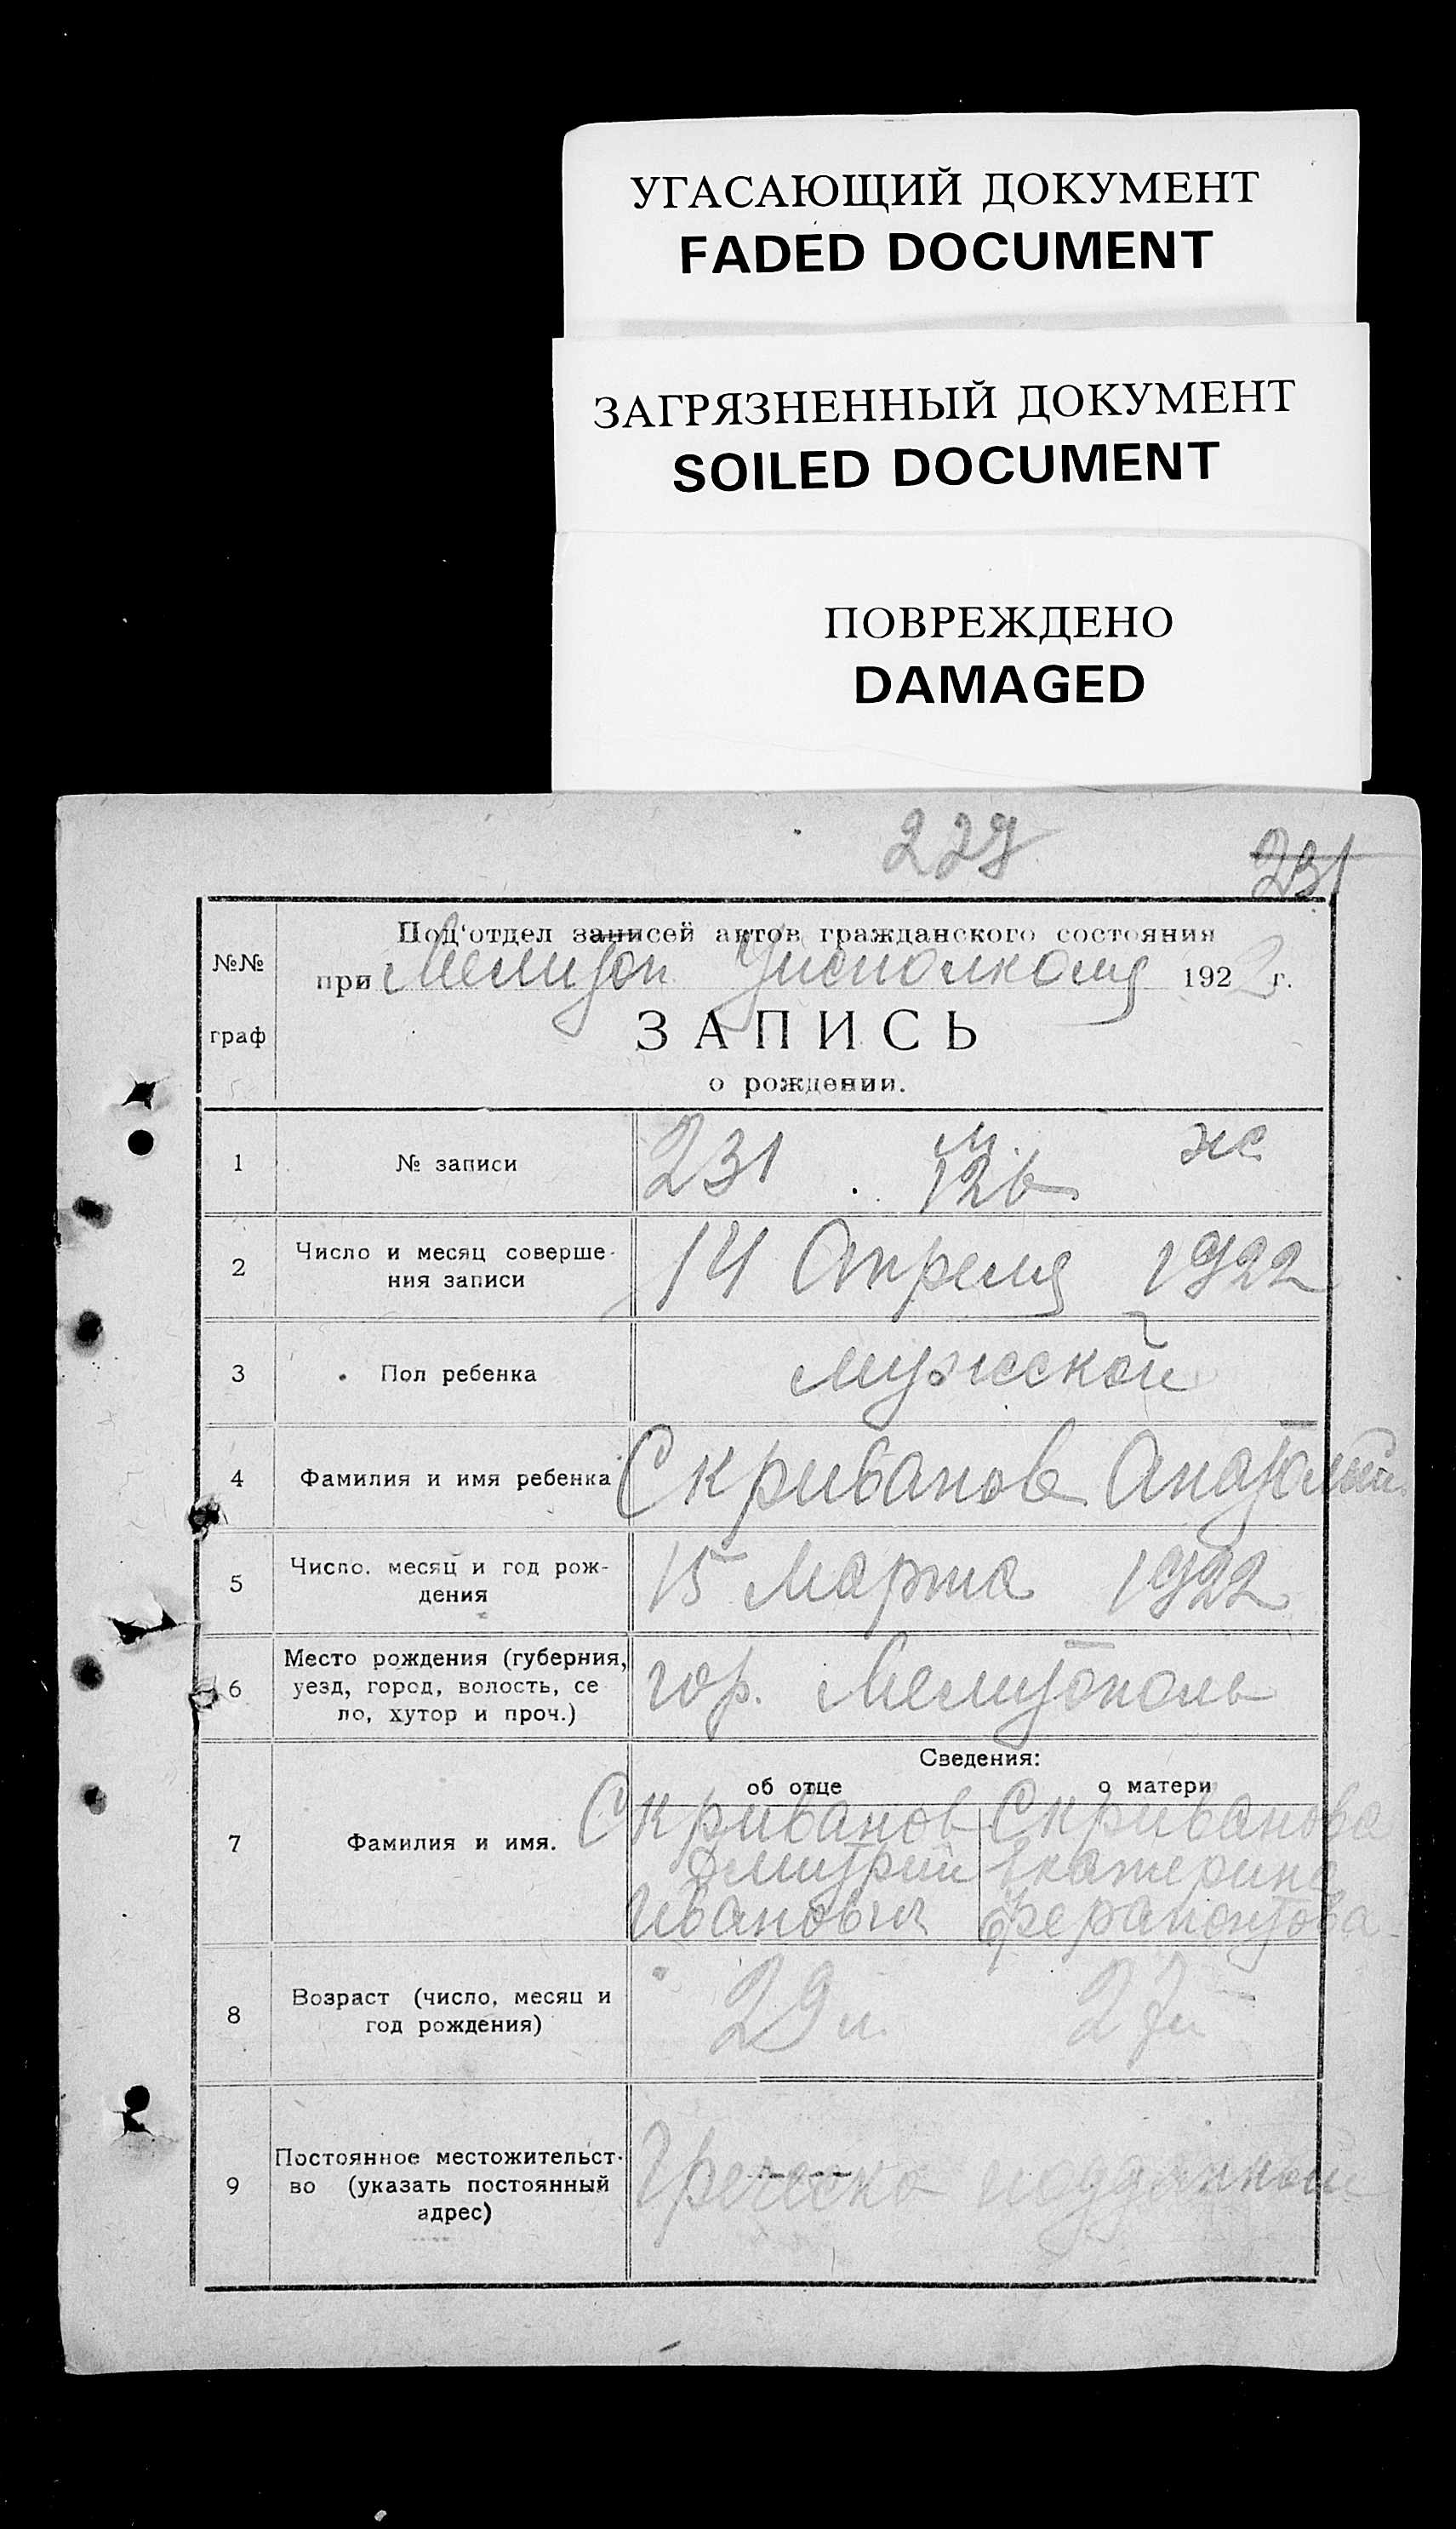 УГАСАЮЩИЙ ДОКУМЕНТ
FADED DOCUMENT
ЗАГРЯЗНЕННЫЙ ДОКУМЕНТ
SOILED DOCUMENT
ПОВРЕЖДЕНО
DAMAGED
227 231
Под'отдел записей актов гражданского состояния
№№ при Мелитоп Уисполкома 1922 г.
граф ЗАПИСЬ
о рождении.
м. ж
1 № записи 231 126
2 Число и месяц соверше- 14 Апреля 1922
ния записи
3 Пол ребенка мужской
4 Фамилия и имя ребенка Скриванов Анатолий
5 Число, месяц и год рож- 15 Марта 1922
дения
Место рождения (губерния,
6 уезд, город, волость, се гор. Мелитополь
ло, хутор и проч.)
Сведения:
об отце о матери
Скриванов Скриванова
7 Фамилия и имя. Дмитрий Екатерина
Иванович Ферапонтова
8 Возраст (число, месяц и 29 л. 27 л
год рождения)
Постоянное местожительст-
9 во (указать постоянный Греческо подданный
адрес)